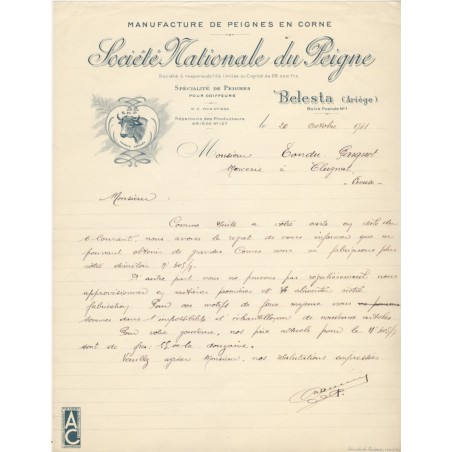 MANUFACTURE DE PEIGNES EN CORNE
Société Nationale du Peigne
Société à responsabilité limitée au Capital de
SPÉCIALITÉ DE PEIGNES
POUR COIFFEURS
Répertoire des Producteurs
Belesta (Ariège)
Boite Postale N° 1
le 20 Octobre 1941
Monsieur Tondu
Mercerie à
Creuse
Monsieur
Comme suite a votre carte en date du
6 Courant, nous avons le regret de vous informer que ne
pouvant obtenir de grandes Cornes nous ne fabriquons plus
votre démêloir N° 605/7.
D'autre part vous ne pouvons pas régulièrement nous
approvisionner en matières premières et alimenter notre
fabrication. Pour ces motifs de force majeure nous
sommes dans l'impossibilité d'échantillonner de nouveaux articles
Pour votre gouverne, nos prix actuels pour le N° 605/7
sont de frs: la douzaine.
Veuillez agréer Monsieur, nos salutations empressées
AC